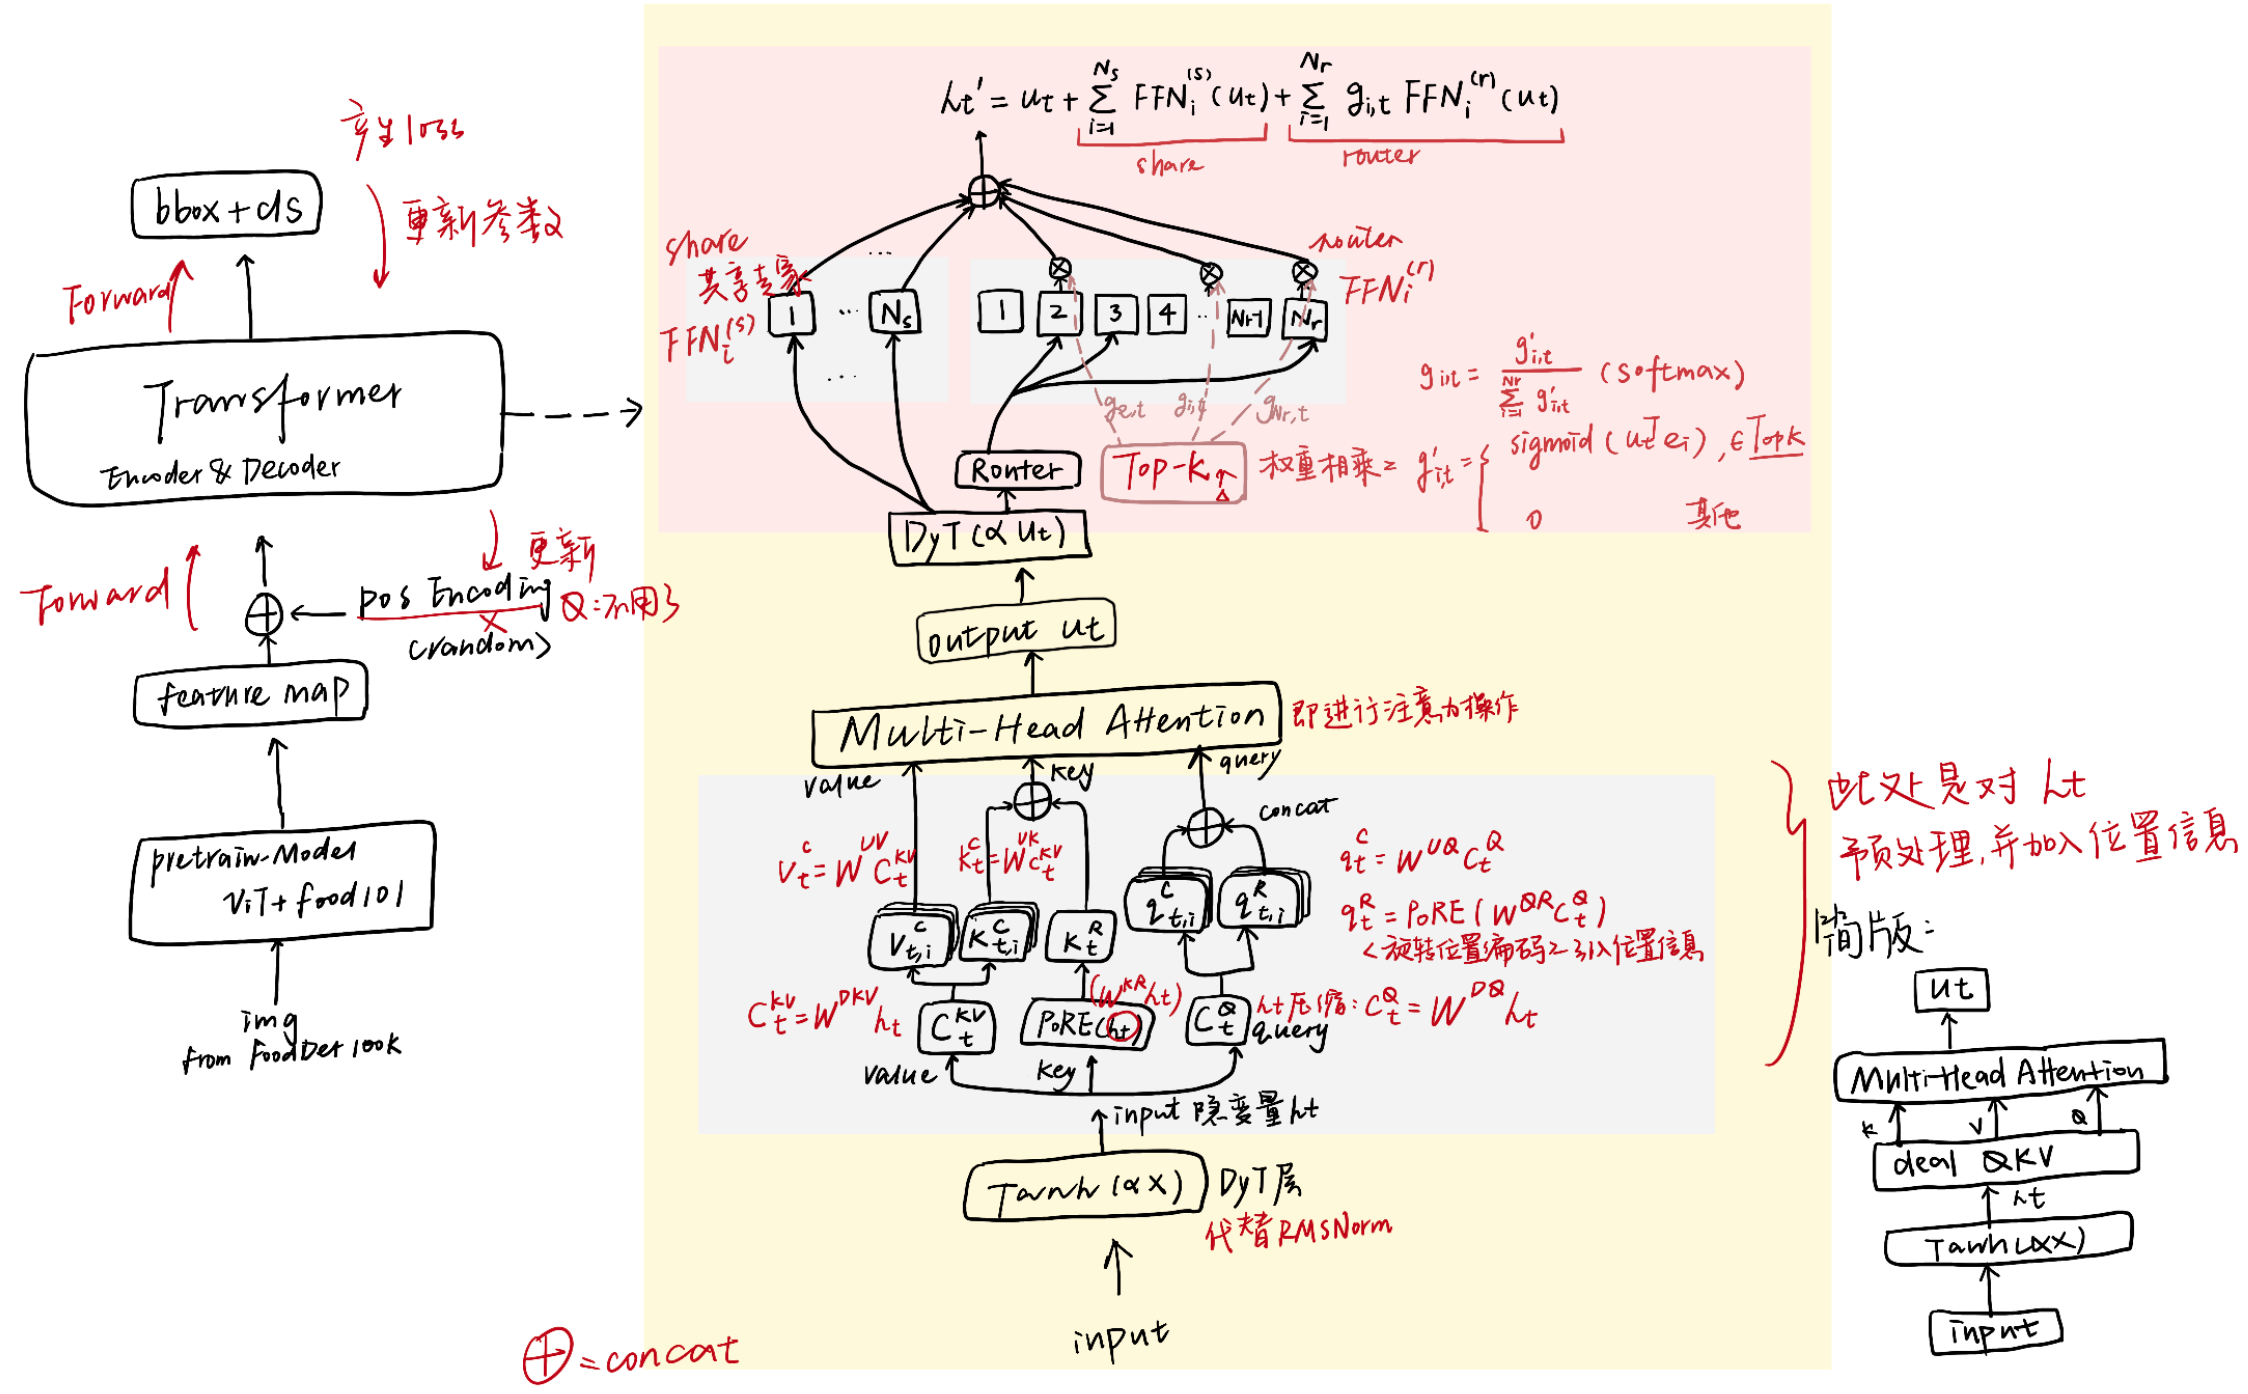 产生loss
更新参数
bbox+cls
Forward
Transformer
Encoder & Decoder
更新
Forward
pos Encoding
Q:不用了
(random)
feature map
pretrain-Model
ViT+food101
img
from FoodDet100k
⊕=concat
ht' = ut + Σ_{i=1}^{Ns} FFN_i^{(s)}(ut) + Σ_{i=1}^{Nr} g_{i,t} FFN_i^{(r)}(ut)
share
router
share
共享专家
FFN_i^{(s)}
1 ... Ns
...
...
1 2 3 4 .. Nr-1 Nr
router
FFN_i^{(r)}
g_{2,t} g_{i,t} g_{Nr,t}
g_{i,t} = g'_{i,t} / Σ_{i=1}^{Nr} g'_{i,t} (softmax)
Router
Top-K
权重相乘= g'_{i,t} = { sigmoid(ut^T ei), ∈Topk
0 其他
DyT(αut)
output ut
Multi-Head Attention
即进行注意力操作
value
key
query
concat
V_t^C = W^{UV} C_t^{KV}
K_t^C = W^{UK} C_t^{KV}
q_t^C = W^{UQ} C_t^Q
q_t^R = PoRE(W^{QR} C_t^Q)
<旋转位置编码>引入位置信息
V_{t,i}^C
K_{t,i}^C
K_t^R
q_{t,i}^C
q_{t,i}^R
C_t^{KV} = W^{DKV} ht
C_t^{KV}
(W^{KR} ht)
PoRE(ht)
C_t^Q
ht压缩: C_t^Q = W^{DQ} ht
value
key
query
input 隐变量ht
Tanh(αx)
DyT层
代替RMSNorm
input
此处是对 ht
预处理,并加入位置信息
简版:
ut
Multi-Head Attention
K V Q
deal QKV
ht
Tanh(αx)
input